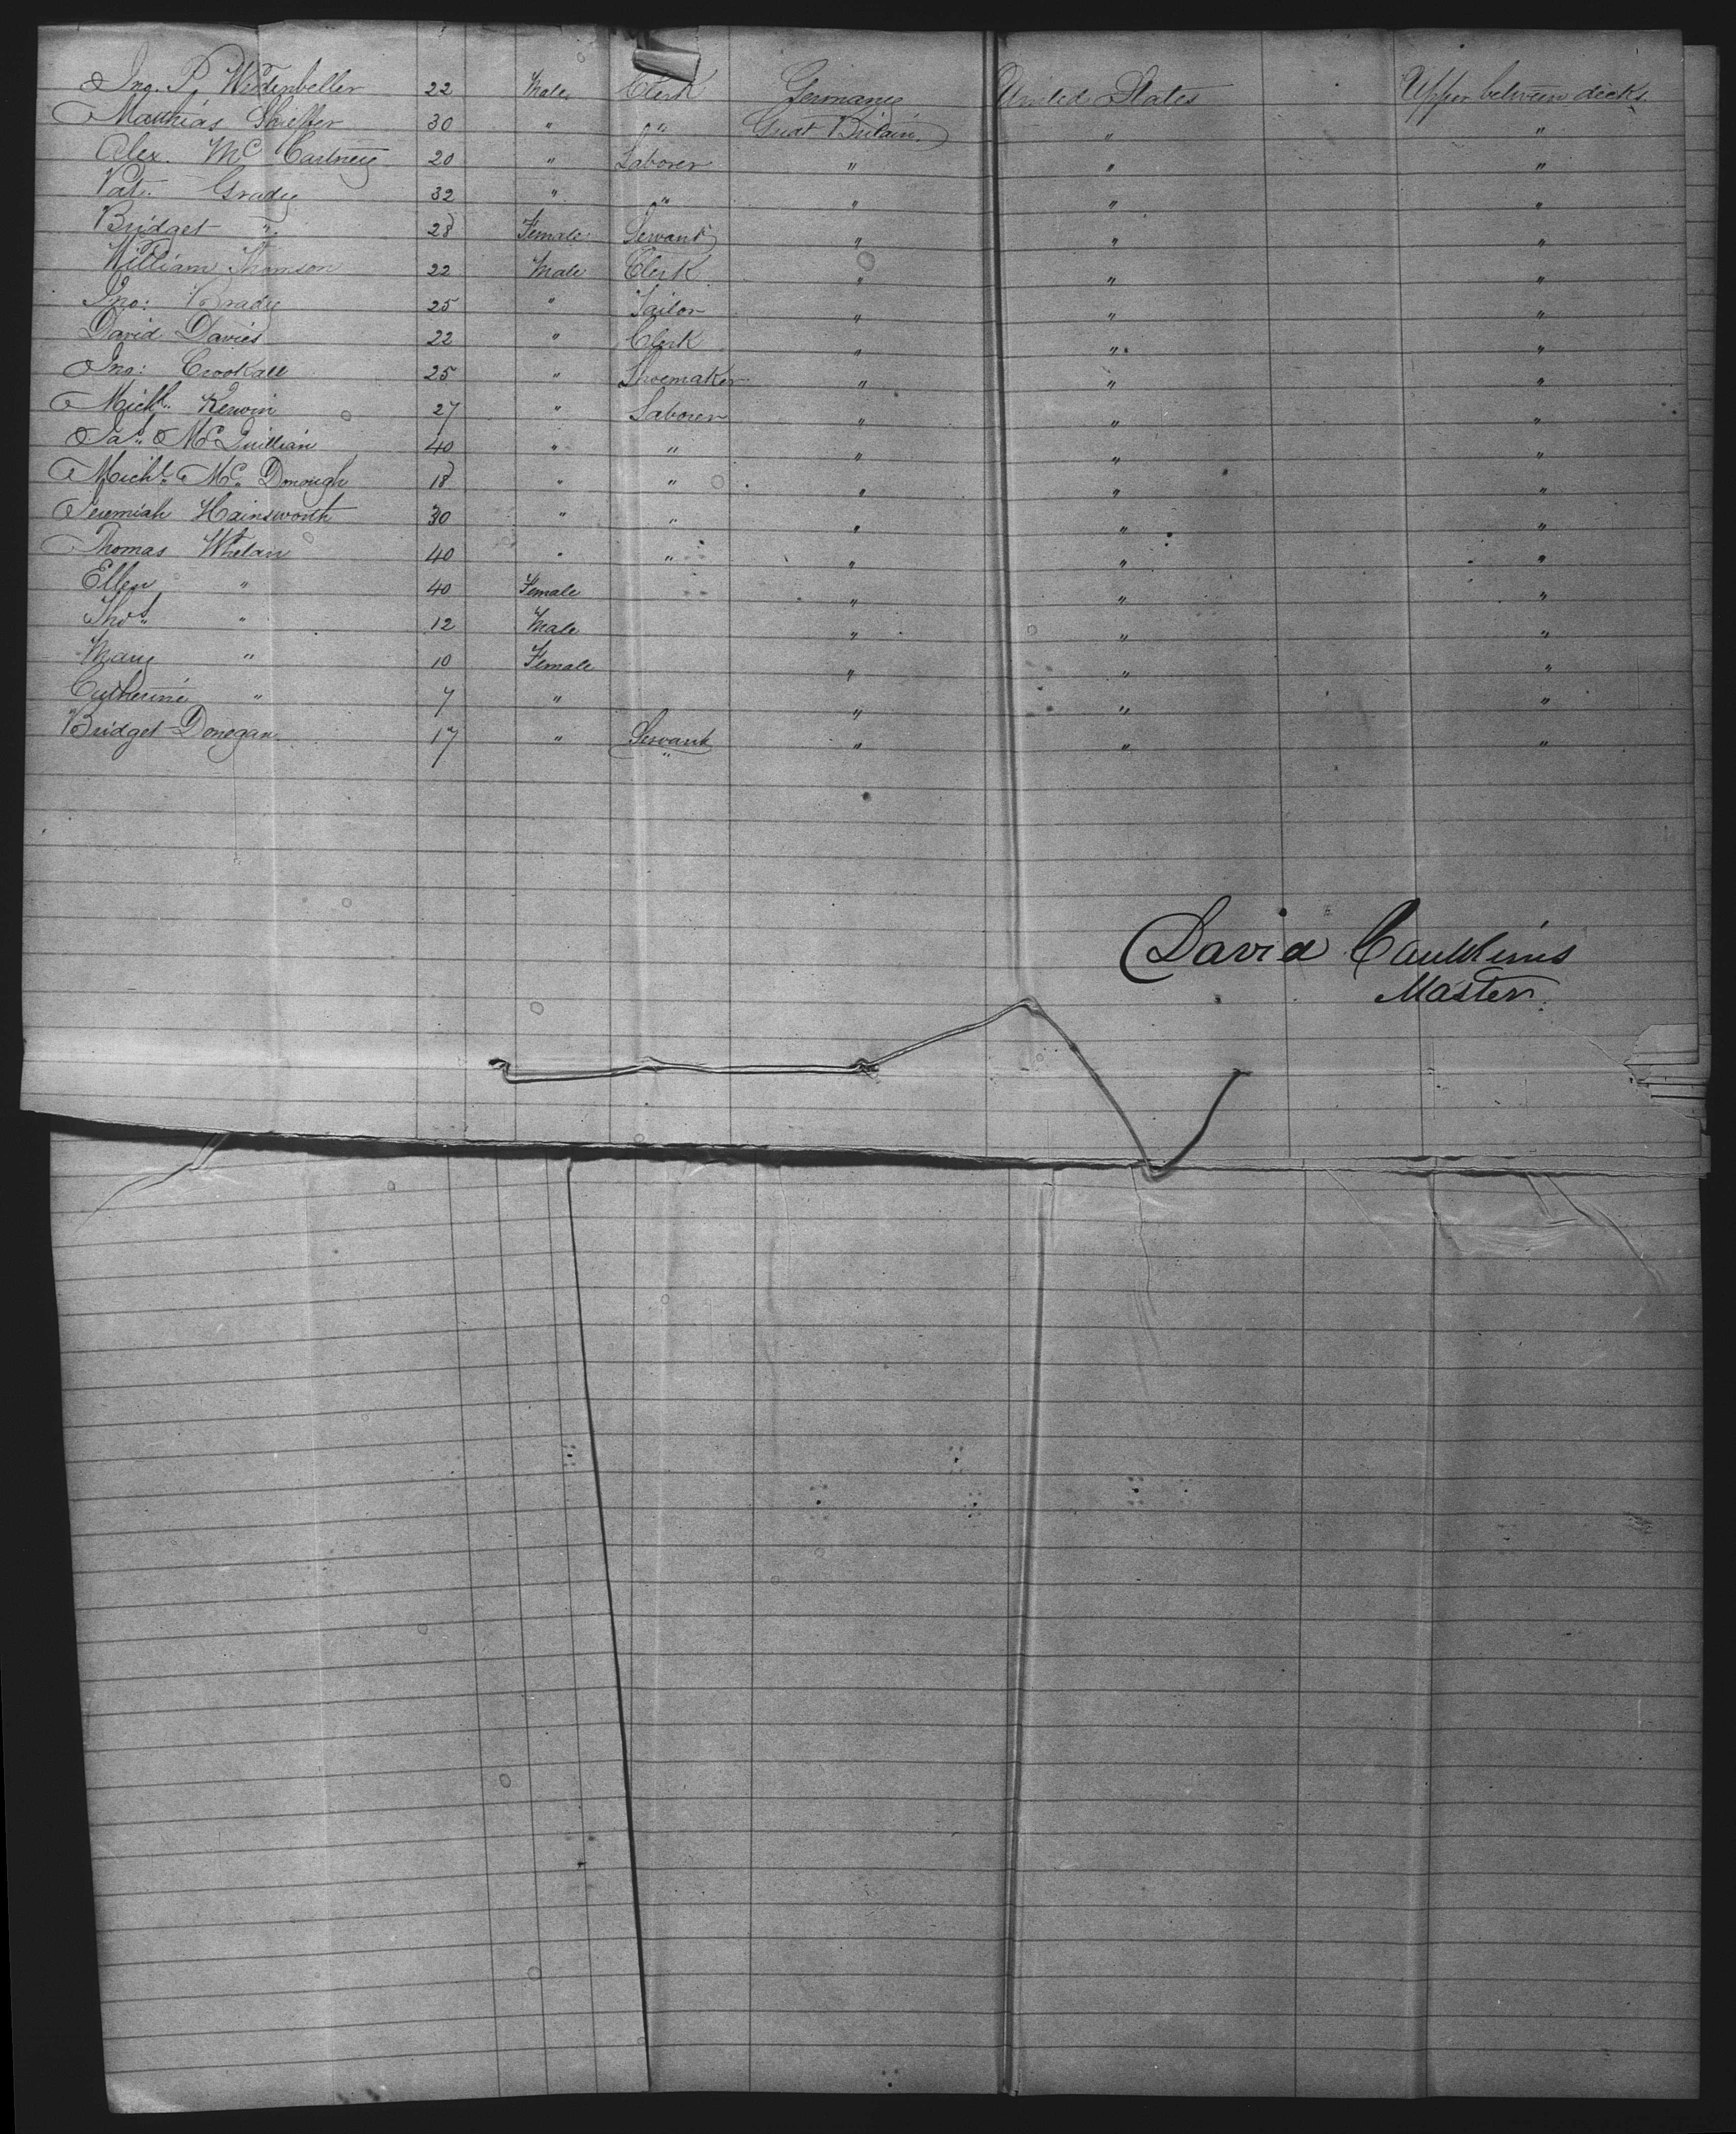 Jno. P. Wistenbeller 22 Male Clerk Germany United States Upper between decks.
Matthias Shieffer 30 " " Great Britain " "
Alex. Mc Cartney 20 " Laborer " " "
Pat. Grady 32 " " " " "
Bridget " 28 Female Servant " " "
William Thomson 22 Male Clerk " " "
Jno: Brady 25 " Tailor " " "
David Davies 22 " Clerk " " "
Jno: Crookall 25 " Shoemaker " " "
Michl. Kerwin 27 " Laborer " " "
Jas. McQuillian 40 " " " " "
Michl. Mc. Donough 18 " " " " "
Jeremiah Hainsworth 30 " " " " "
Thomas Whelan 40 " " " " "
Ellen " 40 Female " " "
Thos. " 12 Male " " "
Mary " 10 Female " " "
Catherine " 7 " " " "
Bridget Donegan. 17 " Servant " " "
"
David Caulkins
Master.